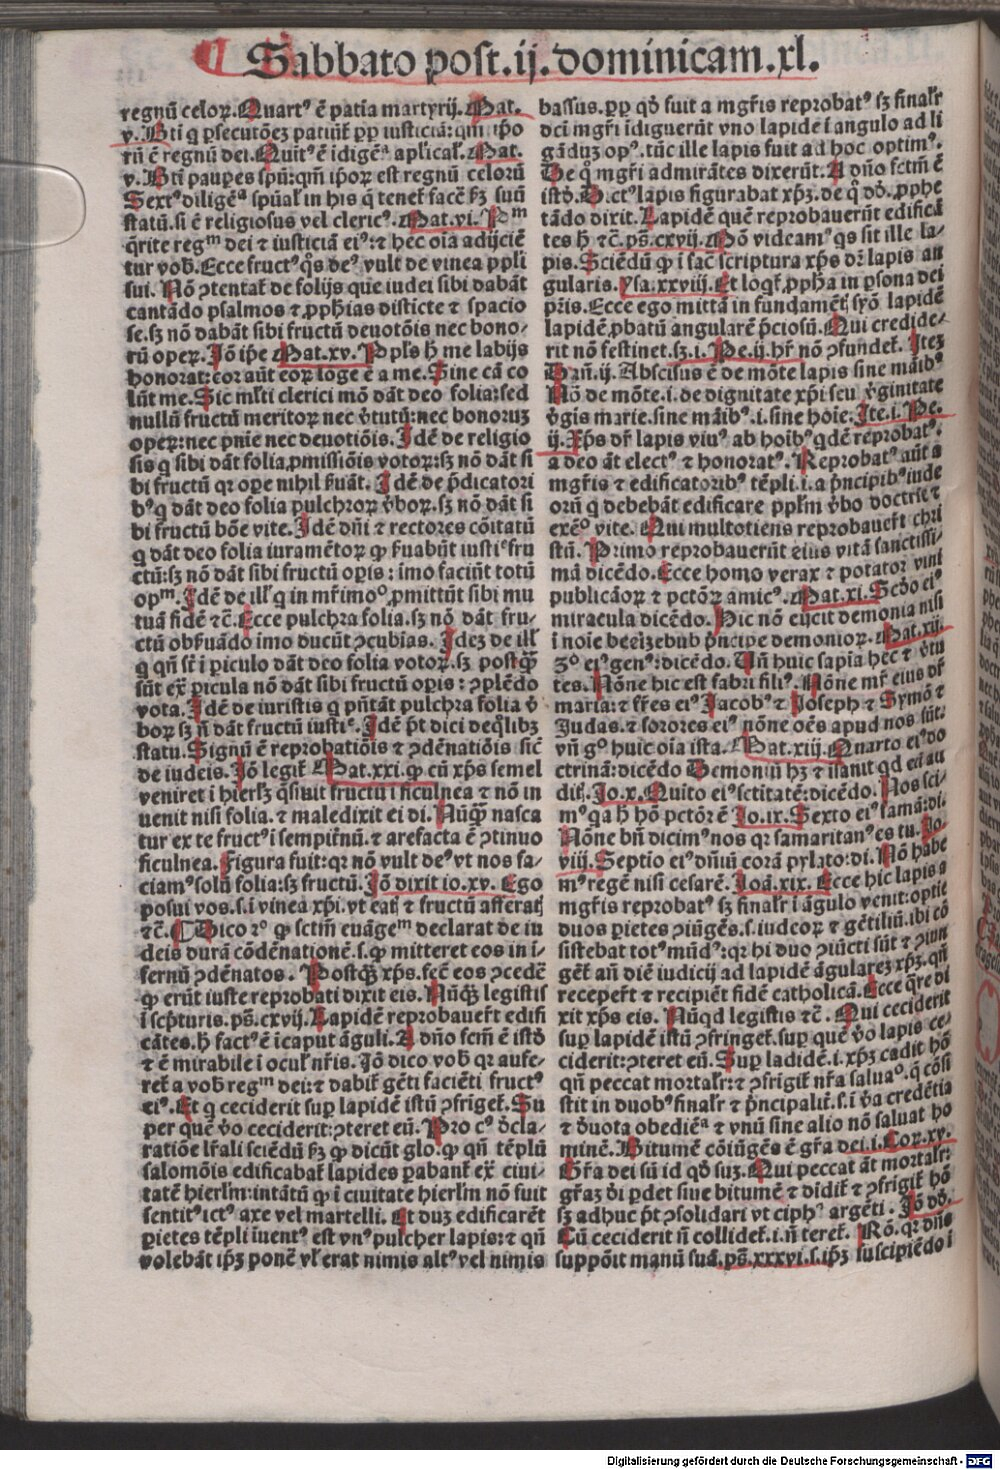 ¶ Sabbato post.ij.dominicam.xl.
regnū celoꝝ. Quart⁹ ē patia martyrij. Mat.
v. Bti q̄ ꝑsecutōeꝫ patiūt̄ ꝓp iusticiā: qm̄ ip̄o
rū ē regnū dei. Quīt⁹ ē idigēᵃ apl̓ical̓. Mat.
v. Bti pauꝑes spū: qm̄ ip̄oꝝ est regnū celorū
Sext⁹ diligēᵃ spūal̓ in his q̄ tenet̄ facē ẜꝫ suū
statū. si ē religiosus vel cleric⁹. Mat.vi. Pᵐ
q̄rite regᵐ dei ⁊ iusticiā ei⁹: ⁊ hec oīa adijciē
tur vob̄. Ecce fruct⁹ q̄s de⁹ vult de vinea ppl̓i
sui. Nō ꝯtentat̄ de folijs que iudei sibi dabāt
cantādo psalmos ⁊ ꝓph̄ias disticte ⁊ spacio
se. sꝫ nō dabāt sibi fructū deuotōis nec bono-
rū opeꝝ. Iō ip̄e Mat.xv. Ppl̓s h̄ me labijs
honorat: cor aūt eoꝝ loge ē a me. Sine cā co
lūt me. Sic ml̓ti clerici mō dāt deo folia: sed
nullū fructū meritoꝝ nec v̓tutū: nec bonoruꝫ
opeꝝ: nec pn̄ie nec deuotiōis. Idē de religio
sis q̄ sibi dāt folia ꝓmissiōis votoꝝ: sꝫ nō dāt si
bi fructū qꝛ ope nihil ẜuāt. Idē de p̄dicatori
b⁹ q̄ dāt deo folia pulchroꝝ v̓boꝝ. sꝫ nō dāt si
bi fructū bōe vite. Idē dn̄i ⁊ rectores cōitatū
q̄ dāt deo folia iuramētoꝝ ꝙ ẜuabūt iustiᶜ fru
ctū: sꝫ nō dāt sibi fructū oꝑis: imo faciūt totū
opᵐ. Idē de ill̓ q̄ in mr̄imoᵒ ꝓmittūt sibi mu
tuā fidē ⁊c̄. Ecce pulchra folia. sꝫ nō dāt fru-
ctū obẜuādo imo ducūt ꝯcubias. Ideꝫ de ill̓
q̄ qn̄ sr̄ i ꝑiculo dāt deo folia votoꝝ. sꝫ postq̄ꝫ
sūt ex̄ ꝑicula nō dāt sibi fructū oꝑis: ꝯplēdo
vota. Idē de iuristis q̄ pn̄tāt pulchra folia v̓
boꝝ sꝫ n̄ dāt fructū iustiᶜ. Idē p̄t dici deq̄libꝫ
statu. Signū ē reprobatiōis ⁊ ꝯdēnatiōis sic̄
de iudeis. Iō legit̄ Mat.xxi. ꝙ cū xp̄s semel
veniret i hierl̓ꝫ q̄siuit fructū i ficulnea ⁊ nō in
uenit nisi folia. ⁊ maledixit ei di. Nūq̄ꝫ nasca
tur ex te fruct⁹ i sempit̄nū. ⁊ arefacta ē ꝯtinuo
ficulnea. Figura fuit: qꝛ nō vult de⁹ vt nos fa-
ciam⁹ solū folia: sꝫ fructū. Iō dixit io.xv. Ego
posui vos. s. i vinea xp̄i. vt eat̄ ⁊ fructū afferat̄
⁊c̄. ¶ Dico rᵒ ꝙ sctm̄ euāgeᵐ declarat de iu
deis durā cōdēnationē. s. ꝙ mitteret eos in i-
fernū ꝯdēnatos. Postq̄ꝫ xp̄s. fec̄ eos ꝯcedē
ꝙ erūt iuste reprobati dixit eis. Nūq̄ꝫ legistis
i scp̄turis. ps̄. cxvij. Lapidē reprobauer̄t edifi
cātes. h̄ fact⁹ ē icaput āguli. A dn̄o fcm̄ ē istđ
⁊ ē mirabile i ocul̓ nr̄is. Iō dico vob̄ qꝛ aufe-
ret̄ a vob̄ regᵐ dei: ⁊ dabit̄ gēti faciēti fruct⁹
ei⁹. Et q̄ ceciderit suꝑ lapidē istū ꝯfriget̄. Su
per quē v̓o ceciderit: ꝯteret eū. Pro c⁹ d̓cla-
ratiōe lr̄ali sciēdū ẜꝫ ꝙ dicūt glo. ꝙ qn̄ tēplū
salomōis edificabat̄ lapides ꝑabant̄ ex̄ ciui-
tatē hierlm̄: intātū ꝙ i ciuitate hierlm̄ nō fuit
sentit⁹ ict⁹ axe vel martelli. Et duꝫ edificarēt
ꝑietes tēpli īuent⁹ est vn⁹ pulcher lapis: ⁊ qn̄
volebāt ip̄ꝫ ponē vl̓ erat nimis alt⁹ vel nimis
bassus. ꝓp qđ fuit a mgr̄is reprobat⁹ sꝫ final̓r
dc̄i mgr̄i idiguerūt vno lapide i angulo ad li
gādꝫ op⁹. tūc ille lapis fuit ad hoc optim⁹.
De qͦ mgr̄i admirātes dixerūt. A dn̄o fctm̄ ē
istđ. Dct⁹ lapis figurabat xp̄ꝫ. de q̄ dđ. ꝓphe
tādo dixit. Lapidē quē reprobauerūt edificā
tes h̄ ⁊c̄. ps̄. cxvij. Mō videam⁹ q̄s sit ille la-
pis. Sciēdū ꝙ i sac̄ scriptura xp̄s dr̄ lapis an
gularis. ysa.xxviij. Et loqt̄ ꝓph̄a in ꝑsona dei
pr̄is. Ecce ego mittā in fundamēt̄ syō lapidē
lapidē ꝓbatū angularē p̄ciosū. Qui credide-
rit nō festinet. sꝫ. i. Pe.ij. hr̄ nō ꝯfundet̄. Iteꝫ
Dan̄.ij. Abscisus ē de mōte lapis sine māib⁹
Nō de mōte. i. de dignitate xp̄i seu v̓ginitate
v̓gis marie. sine māib⁹. i. sine hoīe. Ite. i. Pe.
ij. Xp̄s dr̄ lapis viu⁹ ab hoib⁹ q̄dē reprobat⁹.
a deo āt elect⁹ ⁊ honorat⁹. Reprobat⁹ aūt a
mgr̄is ⁊ edificatorib⁹ tēpli. i. a p̄ncipib⁹ iude
orū q̄ debebāt edificare ppl̓m v̓bo doctrīe ⁊
exēᵒ vite. Qui multotiens reprobauer̄t chri
stū. Primo reprobauerūt eius vitā sanctissi-
mā dicēdo. Ecce homo vorax ⁊ potator vini
publicāoꝝ ⁊ pctōꝝ amic⁹. Mat.xi. Scđo ei⁹
miracula dicēdo. Hic nō eijcit demonia nisi
i noīe beelzebub p̄ncipe demonioꝝ. Mat.xij.
3ᵒ ei⁹ gen⁹: dicēdo. Vn̄ huic sapīa hec ⁊ v̓tu
tes. Nōne hic est fabri fili⁹. Nōne mr̄ eius dr̄
maria: ⁊ fr̄es ei⁹ Iacob⁹ ⁊ Ioseph ⁊ Symō ⁊
Iudas. ⁊ sorores ei⁹ nōne oēs apud nos sūt.
vn̄ gᵒ huic oīa ista. Mat.xiij. Quarto ei⁹ do
ctrinā: dicēdo Demoniū hꝫ ⁊ isanit qd eū au
dit̄. Io.x. Quīto ei⁹ sctitatē: dicēdo. Nos sci-
m⁹ qa h̄ hō pctōr ē Io.ix. Sexto ei⁹ famā: di.
Nōne bn̄ dicim⁹ nos qꝛ samaritan⁹ es tu. Io.
viij. Septio ei⁹ dn̄iū corā pylato: di. Nō habe
m⁹ regē nisi cesarē. Ioā.xix. Ecce hic lapis a
mgr̄is reprobat⁹ sꝫ final̓r i āgulo venit: optie
duos ꝑietes ꝯiūgēs. s. iudeoꝝ ⁊ gētiliū. ibi cō
sistebat tot⁹ mūd⁹: qꝛ hi duo ꝯiūcti sūt ⁊ ꝯiun
gēt̄ an̄ diē iudicij ad lapidē āgulareꝫ xp̄ꝫ. qn̄
receper̄t ⁊ recipiēt fidē catholicā. Ecce q̄re di
xit xp̄s eis. Nūqd legistis ⁊c̄. Qui ceciderit
suꝑ lapidē istū ꝯfringet̄. suꝑ quē v̓o lapis ce-
ciderit: ꝯteret eū. Suꝑ ladidē. i. xp̄ꝫ cadit hō
qn̄ peccat mortal̓r: ⁊ ꝯfrigit̄ nr̄a saluaᵒ. q̄ cōsi
stit in duob⁹ final̓r ⁊ p̄ncipalit̄. s. i v̓a credētia
⁊ d̓uota obediēᵃ ⁊ vnū sine alio nō saluat ho
minē. Bitumē cōiūgēs ē gr̄a dei. i. Cor.xv.
Gr̄a dei sū id qđ suꝫ. Qui peccat āt mortal̓r:
gr̄aꝫ d̓i ꝑdet siue bitumē ⁊ didit̄ ⁊ ꝯfrigit̄ hō
sꝫ adhuc p̄t ꝯsolidari vt ciph⁹ argēti. Iō dđ.
Cū ceciderit n̄ collidet̄. i. n̄ teret̄. Rō. qꝛ dn̄s
suppōit manū suā. ps̄. xxxvi. s. ip̄ꝫ suscipiēdo i
Digitalisierung gefördert durch die Deutsche Forschungsgemeinschaft - DFG